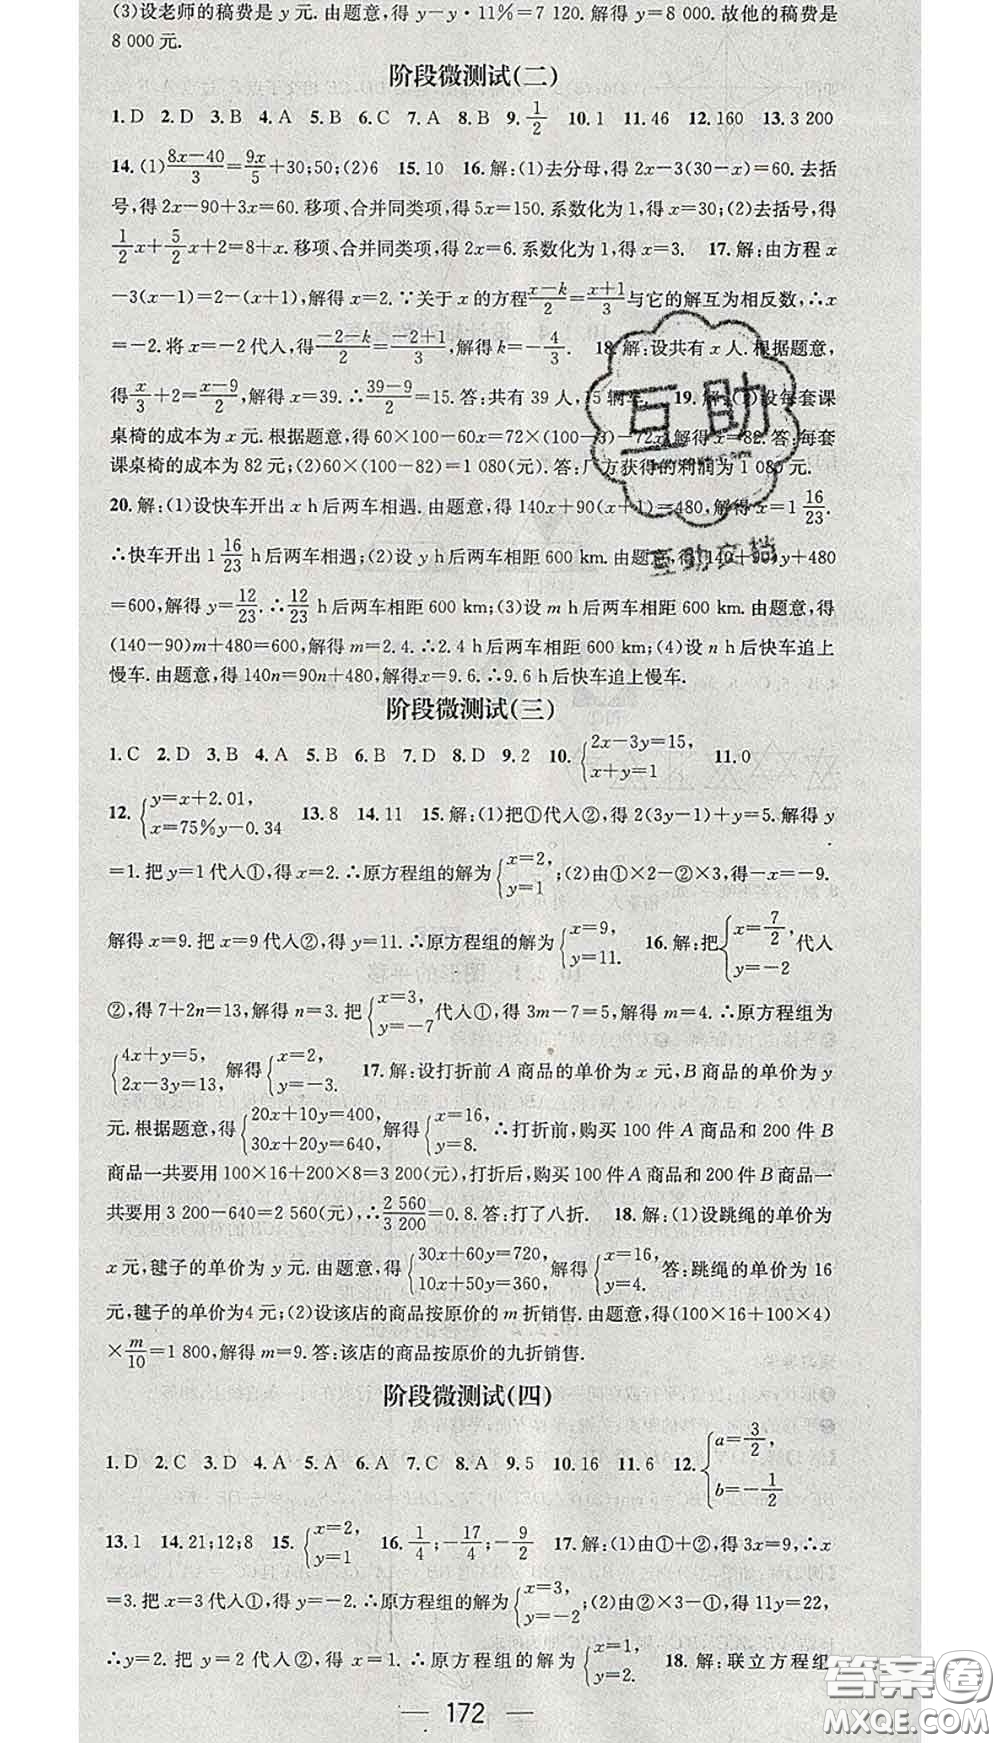 (3)设老师的稿费是 y 元. 由题意,得 y－y·11%＝7 120. 解得 y＝8 000. 故他的稿费是
8 000 元.
阶段微测试(二)
1.D 2.D 3.B 4.A 5.B 6.C 7.A 8.B 9.1/2 10.1 11.46 12.160 13.3 200
14.(1)(8x－40)/3＝9x/5＋30;50;(2)6 15.10 16.解:(1)去分母,得 2x－3(30－x)＝60. 去括
号,得 2x－90＋3x＝60. 移项、合并同类项,得 5x＝150. 系数化为 1,得 x＝30;(2)去括号,得
1/2x＋5/2x＋2＝8＋x. 移项、合并同类项,得 2x＝6. 系数化为 1,得 x＝3. 17.解:由方程 x
－3(x－1)＝2－(x＋1),解得 x＝2. ∵关于 x 的方程(x－k)/2＝(x＋1)/3与它的解互为相反数,∴x
＝－2. 将 x＝－2 代入,得(－2－k)/2＝(－2＋1)/3,解得 k＝－4/3. 18.解:设共有 x 人. 根据题意,
得x/3＋2＝(x－9)/2. 解得 x＝39,∴(39－9)/2＝15. 答:共有 39 人,15 辆车. 19.解:(1)设每套课
桌椅的成本为 x 元. 根据题意,得 60×100－60x＝72×(100－3)－72x,解得 x＝82. 答:每套
课桌椅的成本为 82 元;(2)60×(100－82)＝1 080(元). 答:厂方获得的利润为 1 080 元.
20.解:(1)设快车开出 x h 后两车相遇. 由题意,得 140x＋90(x＋1)＝480,解得 x＝1 16/23.
∴快车开出 1 16/23 h 后两车相遇;(2)设 y h 后两车相距 600 km. 由题意,得(140＋90)y＋480
＝600,解得 y＝12/23. ∴12/23 h 后两车相距 600 km;(3)设 m h 后两车相距 600 km. 由题意,得
(140－90)m＋480＝600,解得 m＝2.4. ∴2.4 h 后两车相距 600 km;(4)设 n h 后快车追上
慢车. 由题意,得 140n＝90n＋480,解得 x＝9.6. ∴9.6 h 后快车追上慢车.
阶段微测试(三)
1.C 2.D 3.B 4.A 5.B 6.B 7.D 8.D 9.2 10.{2x－3y＝15, x＋y＝1 11.0
12.{y＝x＋2.01, x＝75%y－0.34 13.8 14.11 15.解:(1)把①代入②,得 2(3y－1)＋y＝5. 解得 y
＝1. 把 y＝1 代入①,得 x＝2. ∴原方程组的解为{x＝2, y＝1;(2)由①×2－②×3,得－x＝－9.
解得 x＝9. 把 x＝9 代入②,得 y＝11. ∴原方程组的解为{x＝9, y＝11. 16.解:把{x＝7/2, y＝－2 代入
②,得 7＋2n＝13,解得 n＝3. 把{x＝3, y＝－7 代入①,得 3m－7＝5,解得 m＝4. ∴原方程组为
{4x＋y＝5, 2x－3y＝13, 解得{x＝2, y＝－3. 17.解:设打折前 A 商品的单价为 x 元,B 商品的单价为 y
元. 根据题意,得{20x＋10y＝400, 30x＋20y＝640, 解得{x＝16, y＝8. ∴打折前,购买 100 件 A 商品和 200 件 B
商品一共要用 100×16＋200×8＝3 200(元),打折后,购买 100 件 A 商品和 200 件 B 商品一
共要用 3 200－640＝2 560(元),∴2 560/3 200＝0.8. 答:打了八折. 18.解:(1)设跳绳的单价为
x 元,毽子的单价为 y 元. 由题意,得{30x＋60y＝720, 10x＋50y＝360, 解得{x＝16, y＝4. 答:跳绳的单价为 16
元,毽子的单价为4 元;(2)设该店的商品按原价的 m 折销售. 由题意,得(100×16＋100×4)
×m/10＝1 800,解得 m＝9. 答:该店的商品按原价的九折销售.
阶段微测试(四)
1.D 2.C 3.D 4.A 5.A 6.A 7.C 8.A 9.5 10.16 11.6 12.{a＝3/2, b＝－1/2
13.1 14.21;12;8 15.{x＝2, y＝1 16.1/4;－17/4;－9/2 17.解:(1)由①＋②,得 3x＝9,∴x
＝3. 把 x＝3 代入①,得 y＝－2. ∴原方程组的解为{x＝3, y＝－2;(2)②×3－①,得 11y＝22,
∴y＝2. 把 y＝2 代入②,得 x＝1. ∴原方程组的解为{x＝1, y＝2. 18.解:联立方程组
172
互助
互助文档
答案圈
MXQE.COM